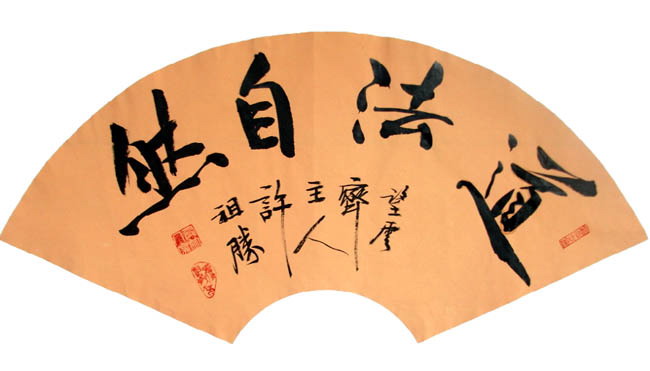 道法自然
望雲
齋
主人
許
祖勝